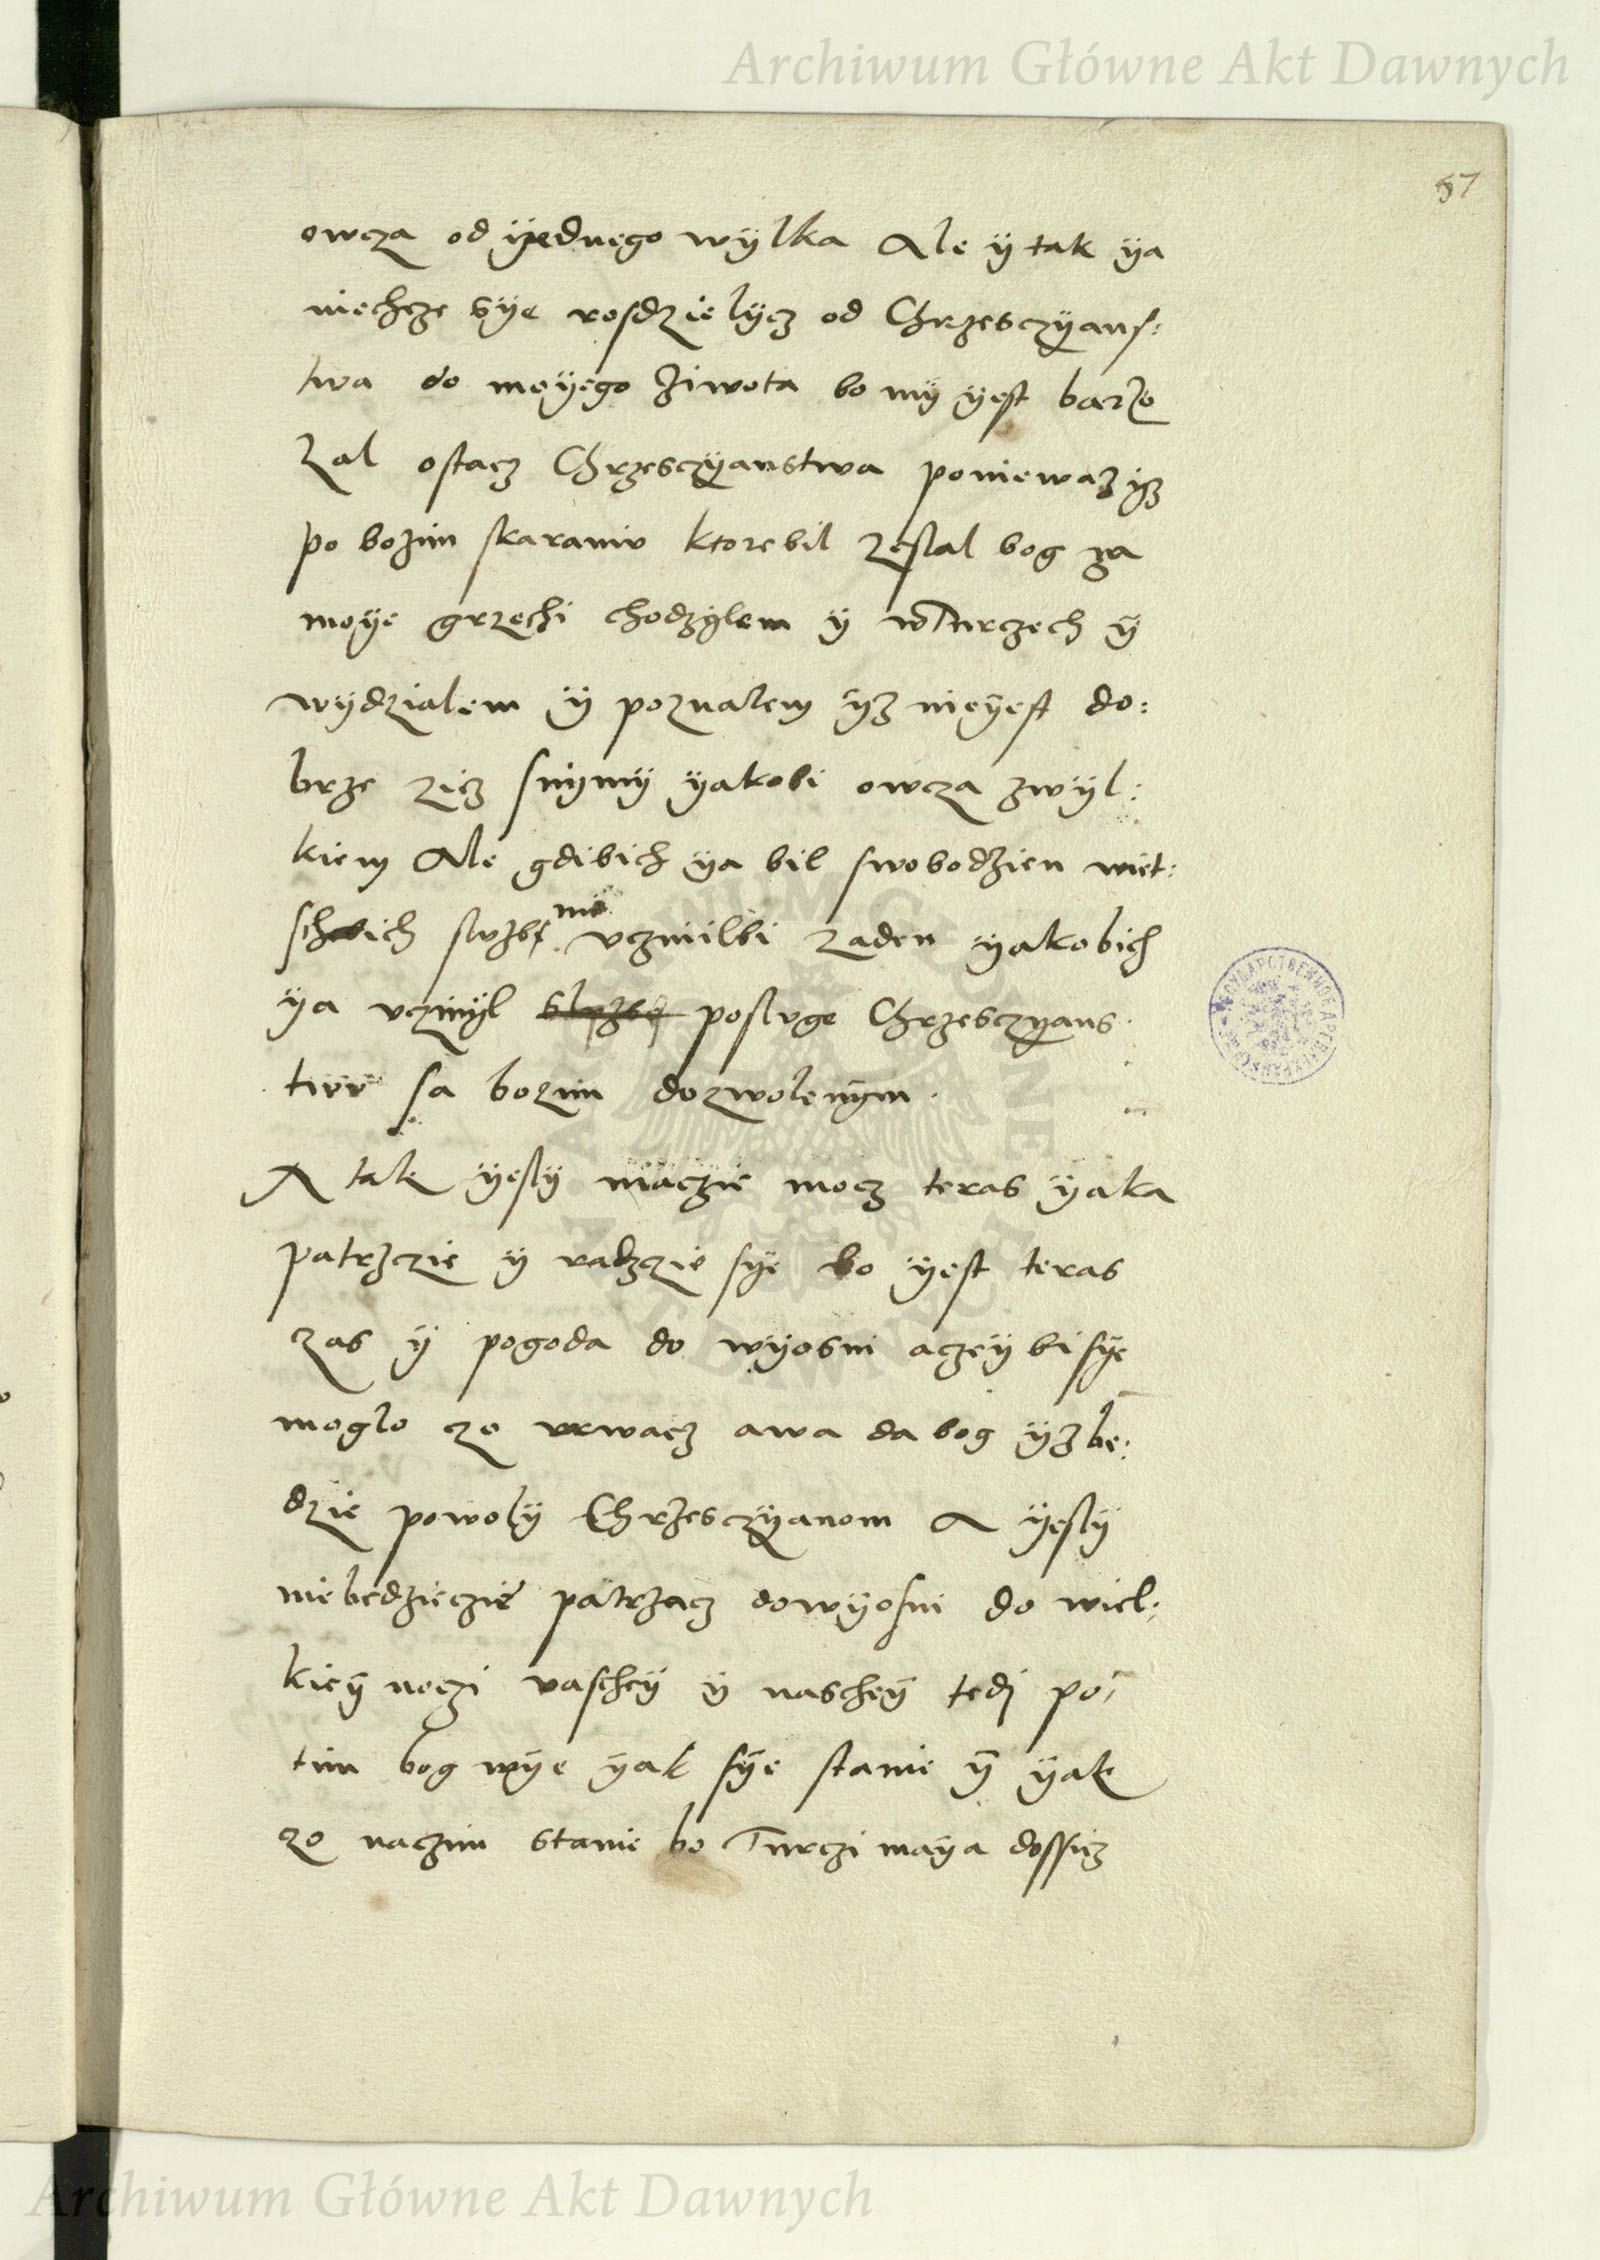 Archiwum Główne Akt Dawnych
57
owcza od ÿednego wÿlka Ale ÿ tak ÿa
niechcze sÿe rosdzielÿcz od Chrzesczÿans:
twa do moÿego ziwota bo mÿ ÿest barzo
zal ostacz Chrzesczÿanstwa poniewaz ÿz
po bozim skaraniv ktore bil zeslal bog za
moÿe grzechi chodzÿlem ÿ w Turczech ÿ
wÿdzialem ÿ poznalem ÿz nieÿest do:
brze zicz snÿmÿ ÿakobi owcza zwÿl:
kiem Ale gdibich ÿa bil swobodzien wiet:
schabich sluzbe nie vczinilbi zaden ÿakobich
ÿa vczinÿl sluzbe posluge Chrzesczÿans
twv sa bozim dozwolenÿm.
A tak ÿeslÿ maczie mocz teras ÿaka
patrzczie ÿ radzczie sÿe bo ÿest teras
czas ÿ pogoda do wÿosni aczeÿ bi sÿe
moglo czo vrwacz awa da bog ÿz be:
dzie powolÿ Chrzesczÿanom A ÿeslÿ
niebedzieczie patrzacz do wÿosni do wiel:
kieÿ noczi vascheÿ ÿ nascheÿ tedi po
tim bog wÿe ÿak sÿe stanie ÿ ÿak
czo naczim stanie bo Turczi maÿa dossicz
Archiwum Główne Akt Dawnych